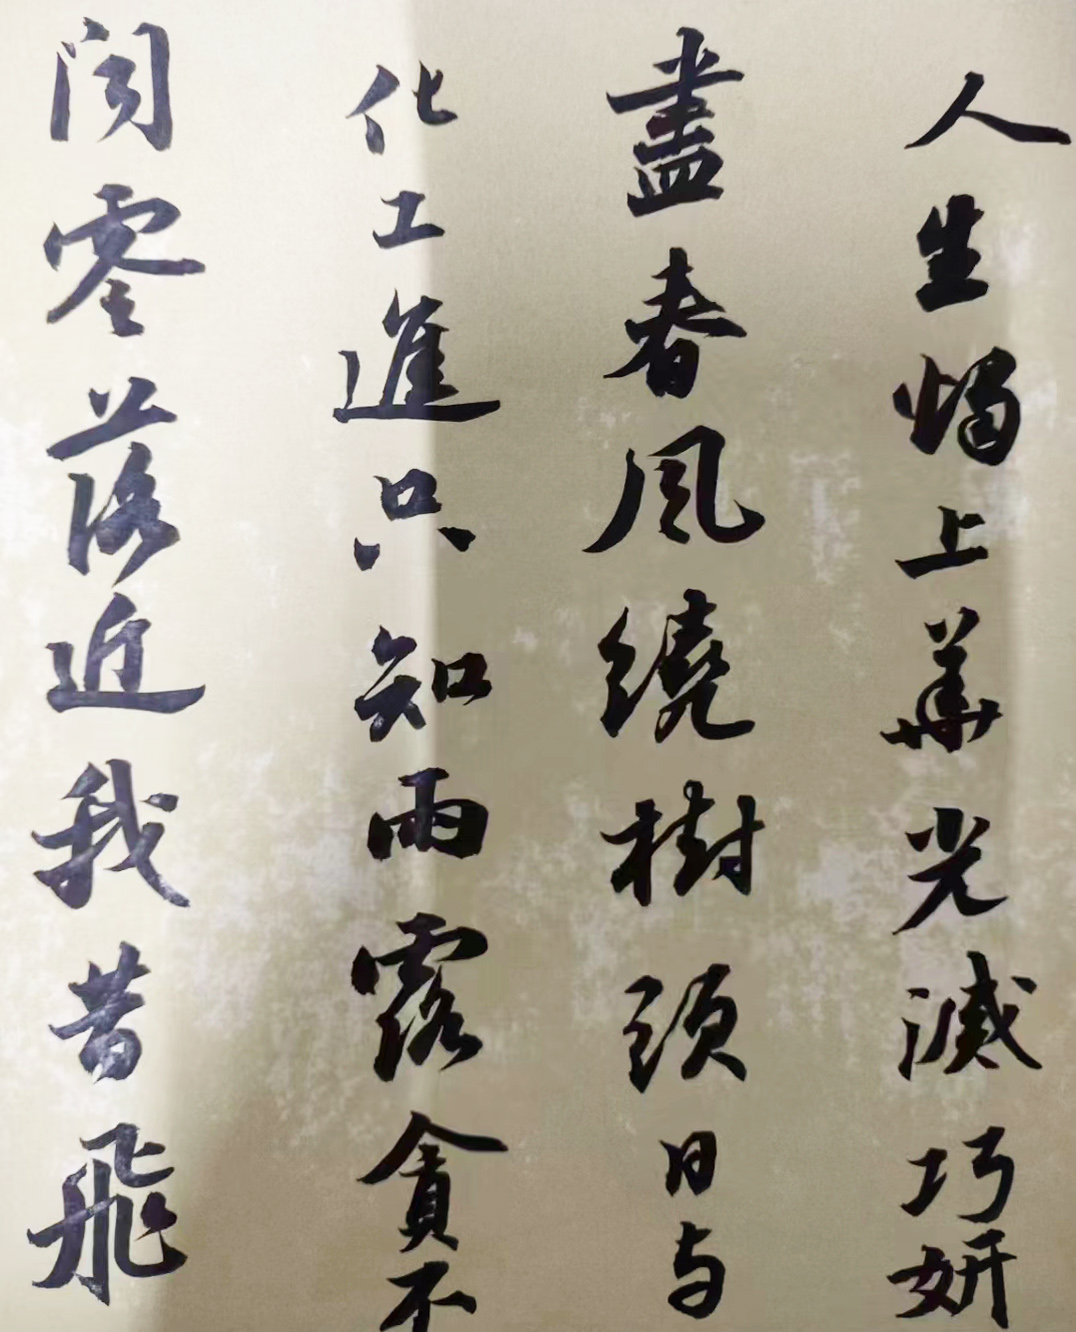 人生燭上華光滅巧妍
盡春風繞樹頭日与
化工進只知雨露貪不
聞零落近我昔飛